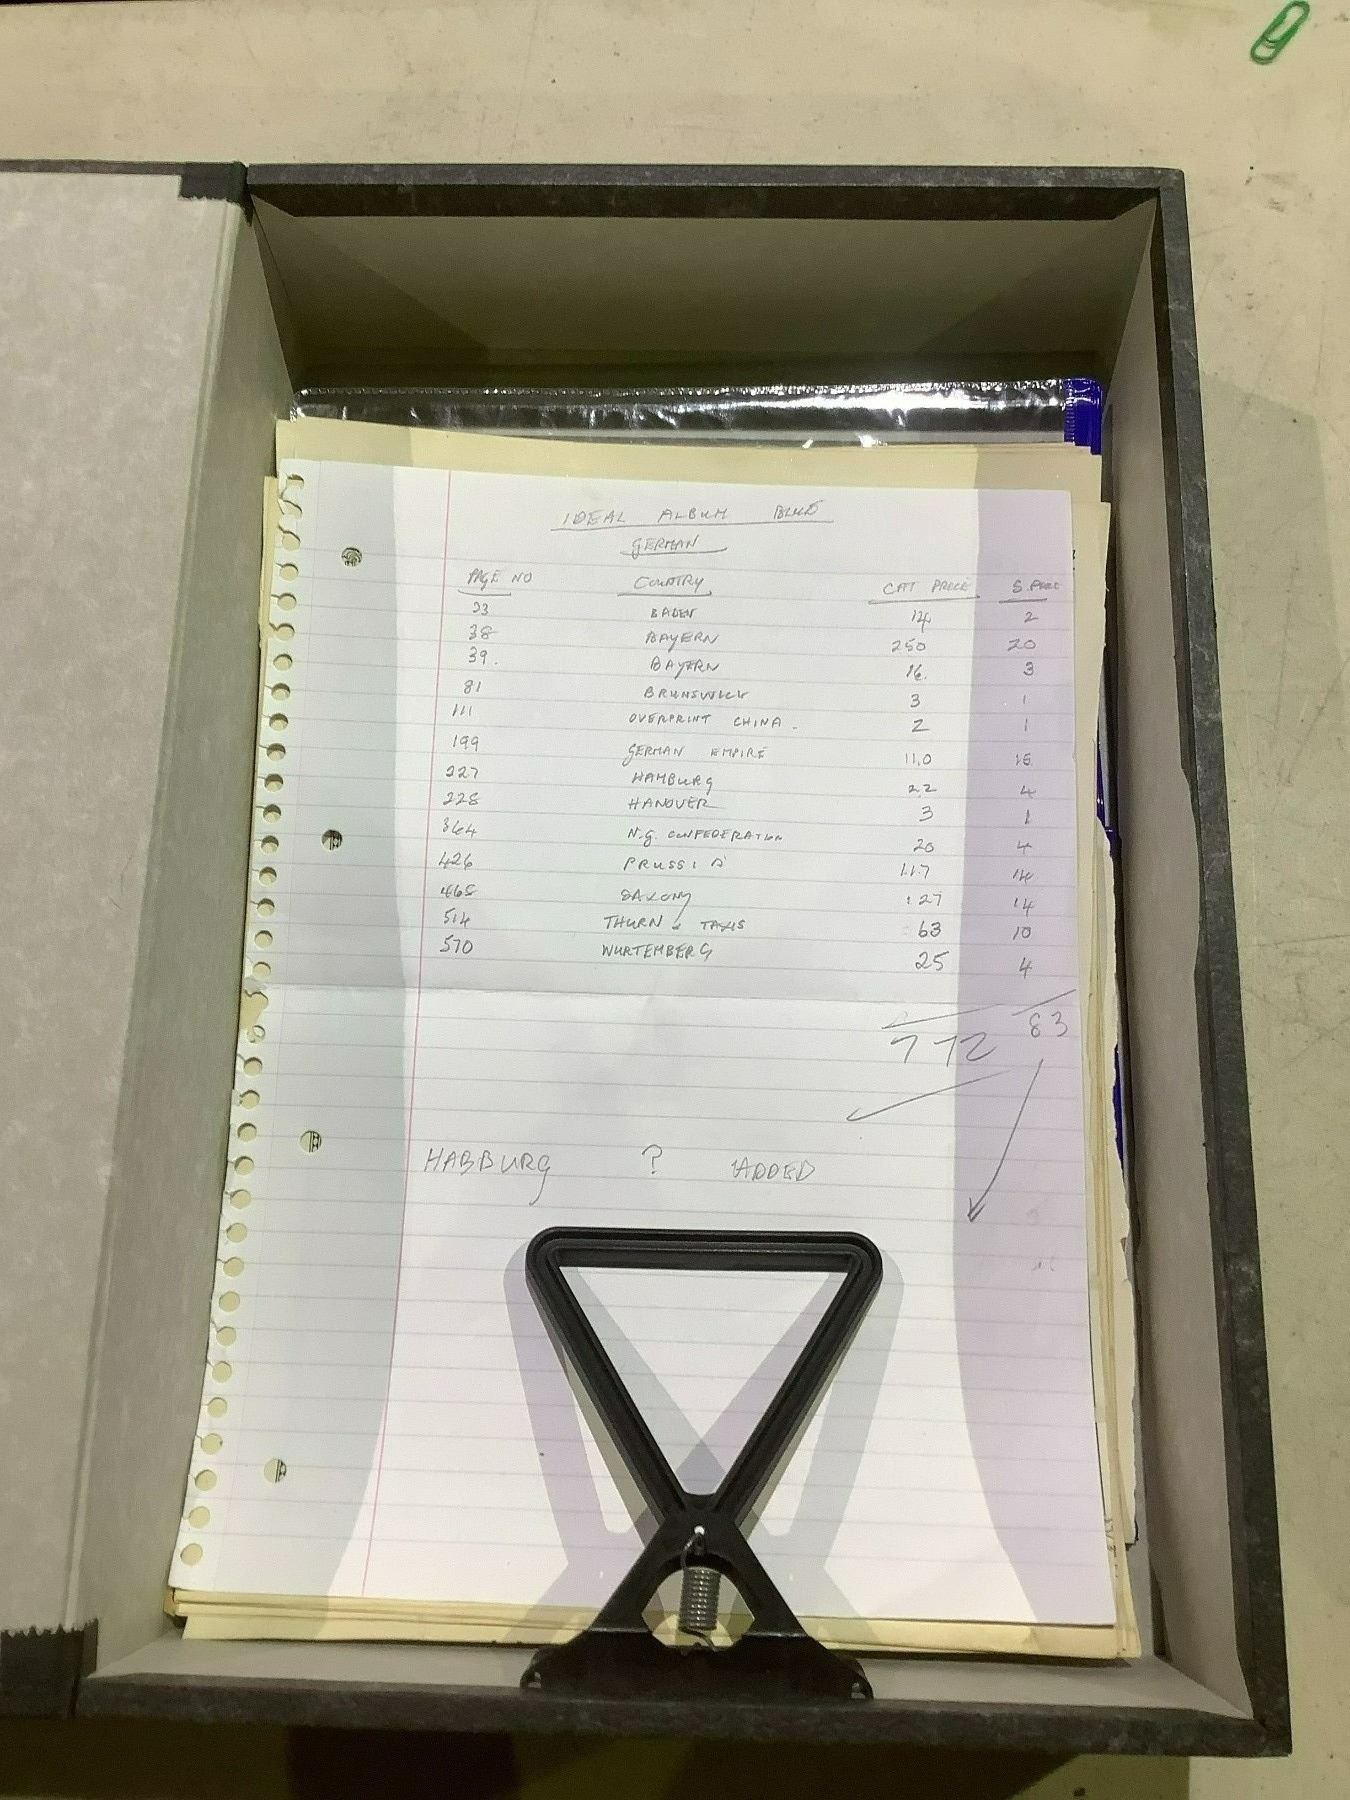 IDEAL ALBUM BLUE
GERMAN
PAGE NO COUNTRY CAT PRICE S. PRICE
33 BADEN 14 2
38 BAYERN 250 20
39. BAYERN 16. 3
81 BRUNSWICK 3 1
111 OVERPRINT CHINA. 2 1
199 GERMAN EMPIRE 110 15
227 HAMBURG 22 4
228 HANOVER 3 1
364 N.G. CONFEDERATION 20 4
426 PRUSSIA 117 14
468 SAXONY 127 14
514 THURN & TAXIS 63 10
570 WURTEMBERG 25 4
772 83
HABBURG ? ADDED